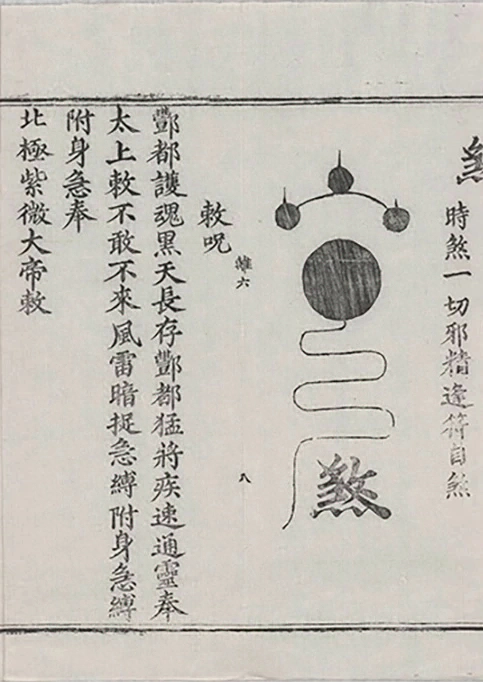 煞
時煞一切邪精逢符自煞
煞
雜六
八
敕呪
酆都護魂黑天長存酆都猛將疾速通靈奉
太上敕不敢不來風雷暗捉急縛附身急縛
附身急奉
北極紫微大帝敕